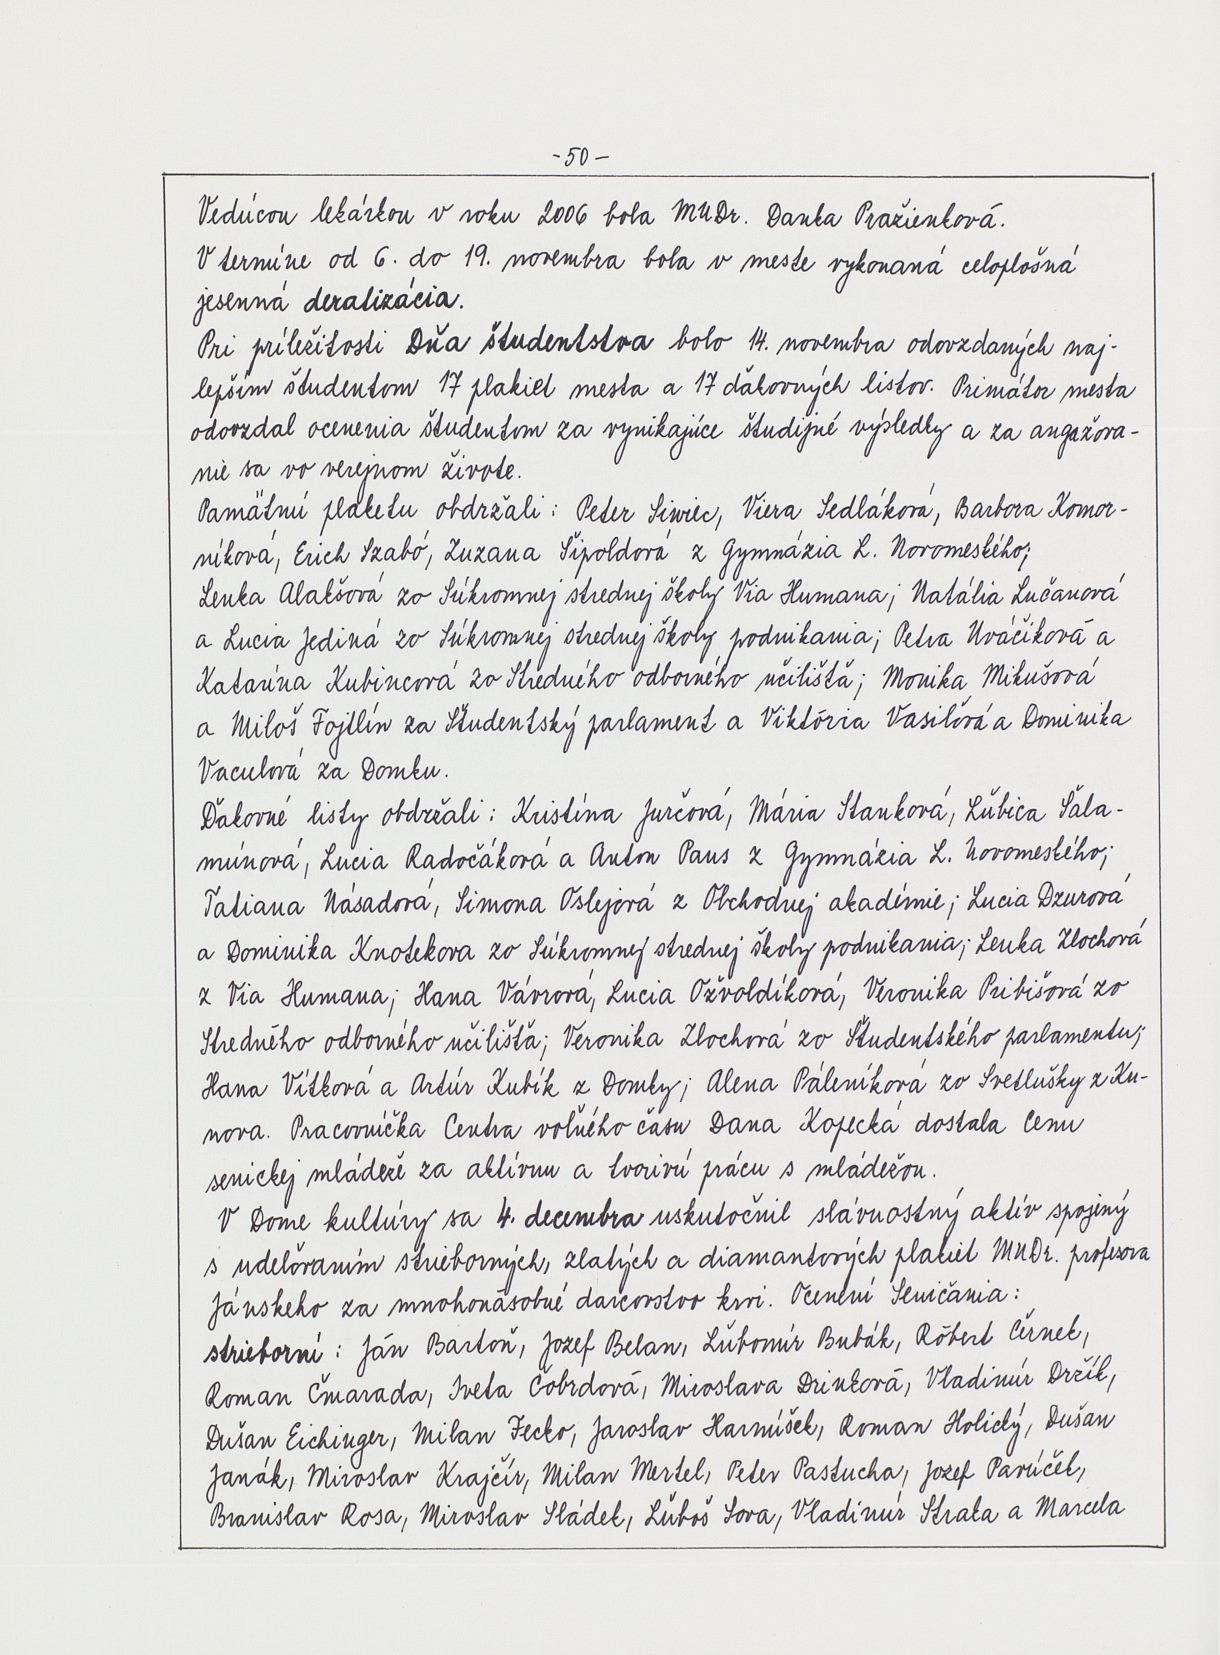 -50-
Vedúcou lekárkou v roku 2006 bola MUDr. Danka Pražienková.
V termíne od 6. do 19. novembra bola v meste vykonaná celoplošná
jesenná deratizácia.
Pri príležitosti Dňa študentstva bolo 14. novembra odovzdaných naj-
lepším študentom 17 plakiet mesta a 17 ďakovných listov. Primátor mesta
odovzdal ocenenia študentom za vynikajúce študijné výsledky a za angažova-
nie sa vo verejnom živote.
Pamätnú plaketu obdržali: Peter Siwiec, Viera Sedláková, Barbora Komor-
níková, Erich Szabó, Zuzana Šipoldová z Gymnázia L. Novomeského;
Lenka Alakšová zo Súkromnej strednej školy Via Humana; Natália Lučanová
a Lucia Jediná zo Súkromnej strednej školy podnikania; Petra Uváčiková a
Katarína Kubincová zo Stredného odborného učilišťa; Monika Mikušová
a Miloš Fojtlín za Študentský parlament a Viktória Vasiľová a Dominika
Vaculová za Domku.
Ďakovné listy obdržali: Kristína Jurčová, Mária Stanková, Ľubica Šala-
múnová, Lucia Radočáková a Anton Paus z Gymnázia L. Novomeského;
Tatiana Násadová, Simona Oslejová z Obchodnej akadémie; Lucia Dzurová
a Dominika Knotekova zo Súkromnej strednej školy podnikania; Lenka Zlochová
z Via Humana; Hana Vávrová, Lucia Ožvoldíková, Veronika Pribišová zo
Stredného odborného učilišťa; Veronika Zlochová zo Študentského parlamentu;
Hana Vítková a Artúr Kubík z Domky; Alena Páleníková zo Svetlušky z Ku-
nova. Pracovníčka Centra voľného času Dana Kopecká dostala Cenu
senickej mládeže za aktívnu a tvorivú prácu s mládežou.
V Dome kultúry sa 4. decembra uskutočnil slávnostný aktív spojený
s udeľovaním strieborných, zlatých a diamantových plakiet MUDr. profesora
Jánskeho za mnohonásobné darcovstvo krvi. Ocenení Seničania:
strieborní: Ján Bartoň, Jozef Belan, Ľubomír Bubák, Róbert Černek,
Roman Čmarada, Iveta Čobrdová, Miroslava Drinková, Vladimír Držík,
Dušan Eichinger, Milan Fecko, Jaroslav Harmíšek, Roman Holický, Dušan
Janák, Miroslav Krajčír, Milan Mertel, Peter Pastucha, Jozef Pavúček,
Branislav Rosa, Miroslav Sládek, Ľuboš Sova, Vladimír Straka a Marcela